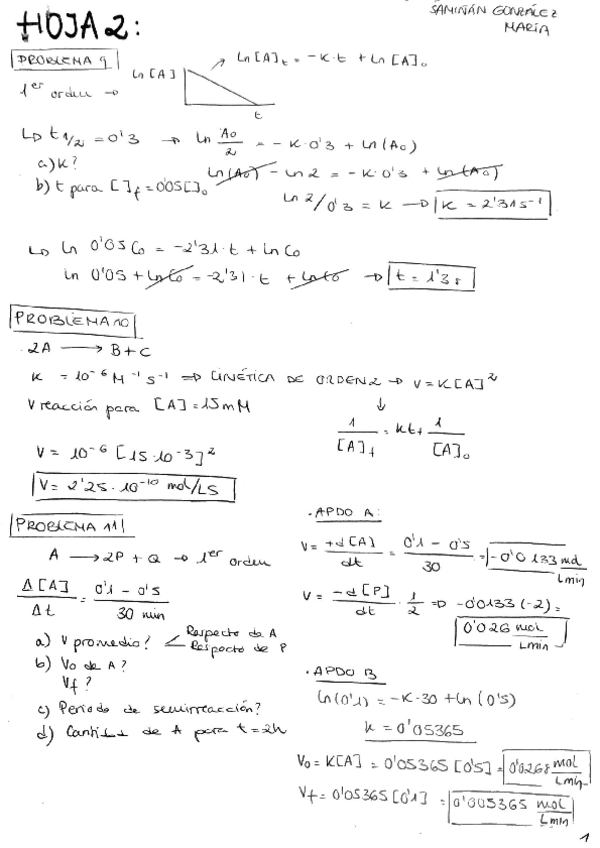 SAMIÑÁN GONZÁLEZ
MARÍA
HOJA 2:
PROBLEMA 9
1er orden →
ln [A]
t
ln [A]t = -K·t + ln [A]₀
↳ t 1/2 = 0'3 → ln A₀/2 = -K·0'3 + ln(A₀)
a) K?
ln(A₀) - ln 2 = -K·0'3 + ln(A₀)
b) t para [ ]f = 0'05[ ]₀
ln 2/0'3 = K → K = 2'31 s⁻¹
↳ ln 0'05 C₀ = -2'31·t + ln C₀
ln 0'05 + ln C₀ = -2'31·t + ln C₀ → t = 1'3 s
PROBLEMA 10
2A → B + C
K = 10⁻⁶ M⁻¹ s⁻¹ ⇒ CINÉTICA DE ORDEN 2 → V = K[A]²
V reacción para [A] = 15 mM
↓
1/[A]f = Kt + 1/[A]₀
V = 10⁻⁶ [15·10⁻³]²
V = 2'25·10⁻¹⁰ mol/LS
PROBLEMA 11
A → 2P + Q → 1er orden
Δ[A]/Δt = 0'1 - 0'5/30 min
a) V promedio? Respecto de A
Respecto de P
b) V₀ de A?
Vf?
c) Periodo de semirreacción?
d) Cantidad de A para t = 2h
· APDO A:
V = +d[A]/dt = 0'1 - 0'5/30 = -0'0133 mol/Lmin
V = -d[P]/dt · 1/2 ⇒ -0'0133(-2) =
0'026 mol/Lmin
· APDO B
ln(0'1) = -K·30 + ln(0'5)
K = 0'05365
V₀ = K[A] = 0'05365 [0'5] = 0'0268 mol/Lmin
Vf = 0'05365 [0'1] = 0'005365 mol/Lmin
1